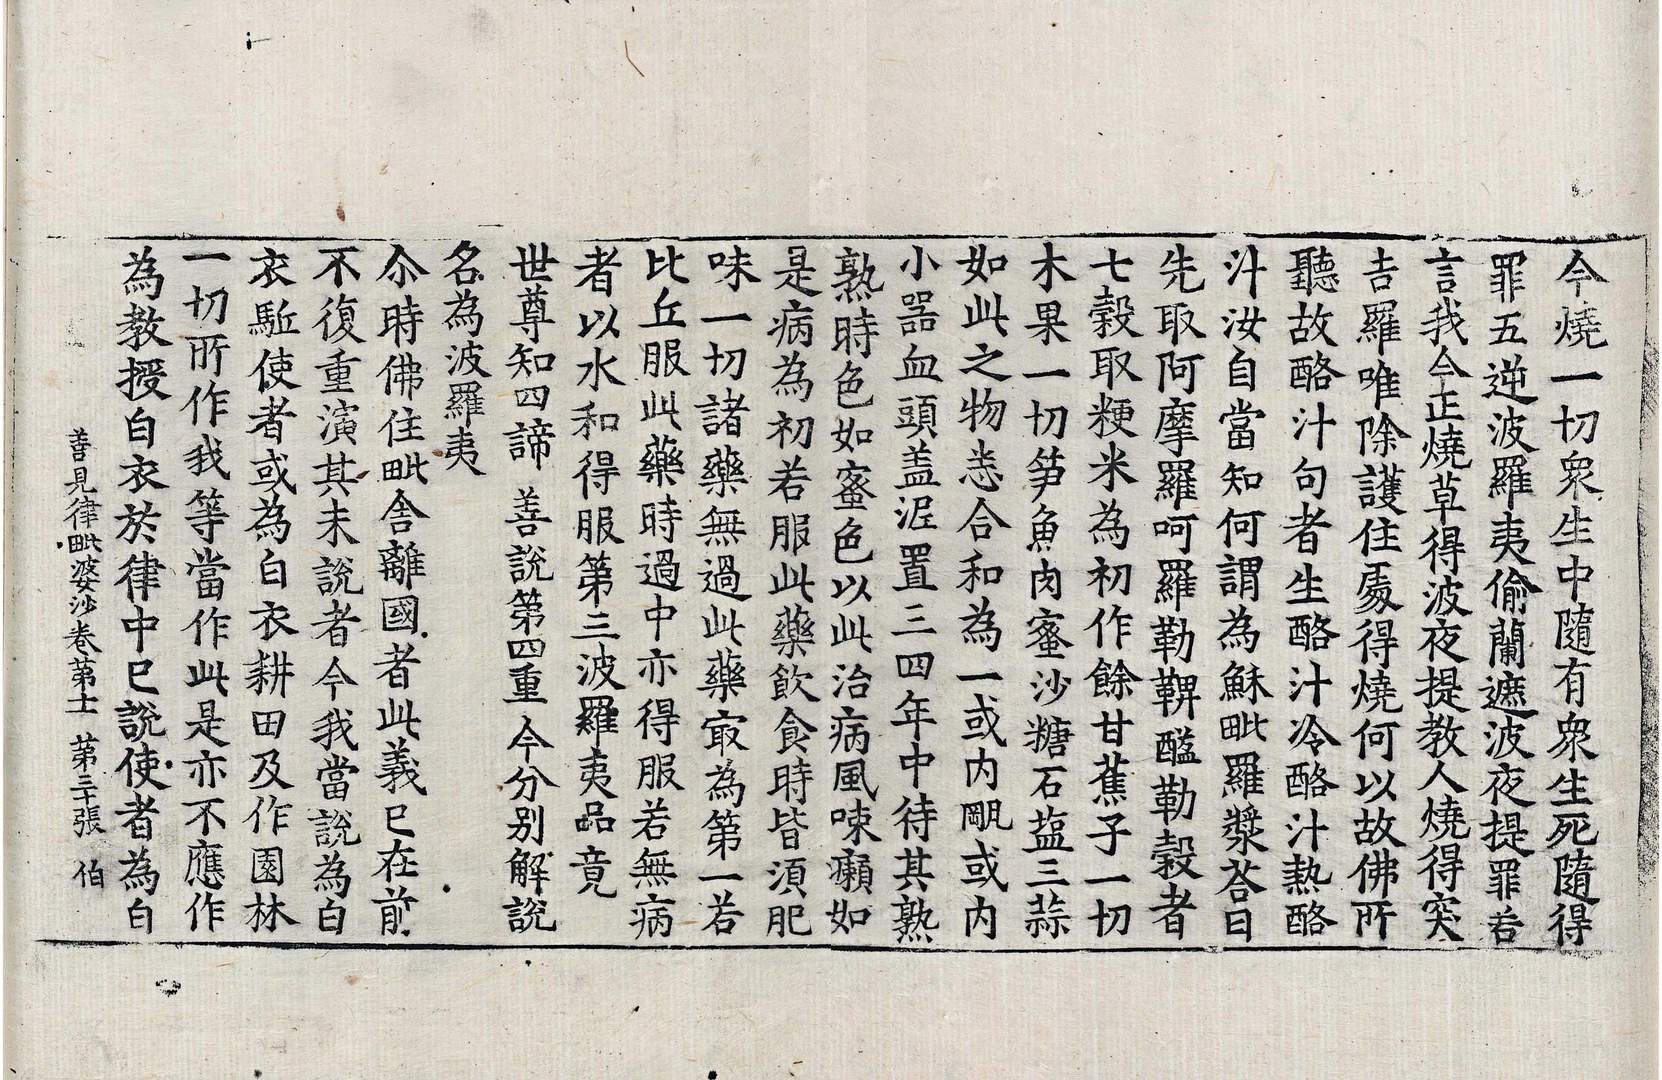 今燒一切衆生中隨有衆生死隨得
罪五逆波羅夷偷蘭遮波夜提罪若
言我今正燒草得波夜提教人燒得突
吉羅唯除護住處得燒何以故佛所
聽故酪汁句者生酪汁冷酪汁熱酪
汁汝自當知何謂為穌毗羅漿荅曰
先取阿摩羅呵羅勒鞞醯勒穀者
七穀取粳米為初作餘甘蕉子一切
木果一切笋魚肉蜜沙糖石鹽三蒜
如此之物悉合和為一或內甖或內
小器血頭盖泥置三四年中待其熟
熟時色如蜜色以此治病風嗽癩如
是病為初若服此藥飲食時皆須肥
味一切諸藥無過此藥㝡為第一若
比丘服此藥時過中亦得服若無病
者以水和得服第三波羅夷品竟
世尊知四諦 善說第四重今分别解說
名為波羅夷
尒時佛住毗舍離國者此義已在前
不復重演其未說者今我當說為白
衣駈使者或為白衣耕田及作園林
一切所作我等當作此是亦不應作
為教授白衣於律中已說使者為白
善見律毗婆沙卷苐十二 苐三十張 伯